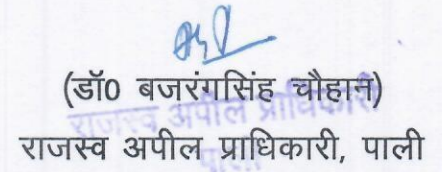 (डॉ0 बजरंगसिंह चौहान)
राजस्व अपील प्राधिकारी
राजस्व अपील प्राधिकारी, पाली
पाली